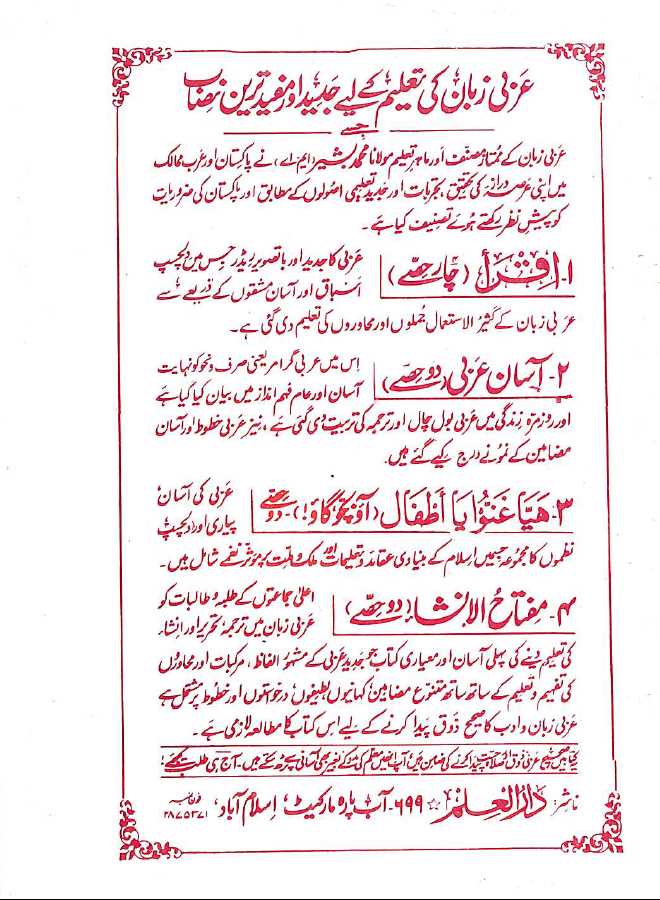 عربی زبان کی تعلیم کے لیے جدید اور مفید ترین نصاب
جسے
عربی زبان کے ممتاز مصنف اور ماہرِ تعلیم مولانا محمد بشیر (ایم اے) نے پاکستان اور عرب ممالک
میں اپنی عرصہ دراز کی تحقیق، تجربات اور جدید تعلیمی اصولوں کے مطابق اور پاکستان کی ضروریات
کو پیش نظر رکھتے ہوئے تصنیف کیا ہے۔
۱- اِقْرَأْ (چار حصّے)
عربی کا جدید اور باتصویر ریڈر جس میں دلچسپ
اسباق اور آسان مشقوں کے ذریعے سے
عربی زبان کے کثیرُ الاستعمال جُملوں اور محاوروں کی تعلیم دی گئی ہے۔
۲- آسان عَرَبی (دو حصّے)
اس میں عربی گرامر یعنی صرف و نحو کو نہایت
آسان اور عام فہم انداز میں بیان کیا گیا ہے
اور روزمرہ زندگی میں عربی بول چال اور ترجمہ کی تربیت دی گئی ہے، نیز عربی خطوط اور آسان
مضامین کے نمونے درج کیے گئے ہیں۔
۳- هَيَّا غَنُّوْا يَا أَطْفَال (آؤ بچو گاؤ!) - دو حصّے
عربی کی آسان،
پیاری اور دلچسپ
نظموں کا مجموعہ جس میں اسلام کے بنیادی عقائد و تعلیمات اور ملک و ملت پر مؤثر نغمے شامل ہیں۔
۴- مفتاحُ الانشاء (دو حصّے)
اعلیٰ جماعتوں کے طلبہ و طالبات کو
عربی زبان میں ترجمہ، تحریر اور انشاء
کی تعلیم دینے کی پہلی آسان اور معیاری کتاب جو جدید عربی کے مشہور الفاظ، مرکبات اور محاوروں
کی تفہیم و تعلیم کے ساتھ ساتھ متنوّع مضامین، کہانیوں، لطیفوں، درخواستوں اور خطوط پر مشتمل ہے
عربی زبان و ادب کا صحیح ذوق پیدا کرنے کے لیے اس کتاب کا مطالعہ لازمی ہے۔
یہ کتابیں صحیح عربی ذوق پیدا کرنے کی ضامن ہیں آپ انہیں معلم کی مدد کے بغیر بھی آسانی سے پڑھ سکتے ہیں۔ آج ہی طلب کیجئے!
ناشر: دارُالعِلم ☆ ۶۹۹- آب پارہ مارکیٹ، اسلام آباد، فون نمبر ۲۸۷۵۳۷۱